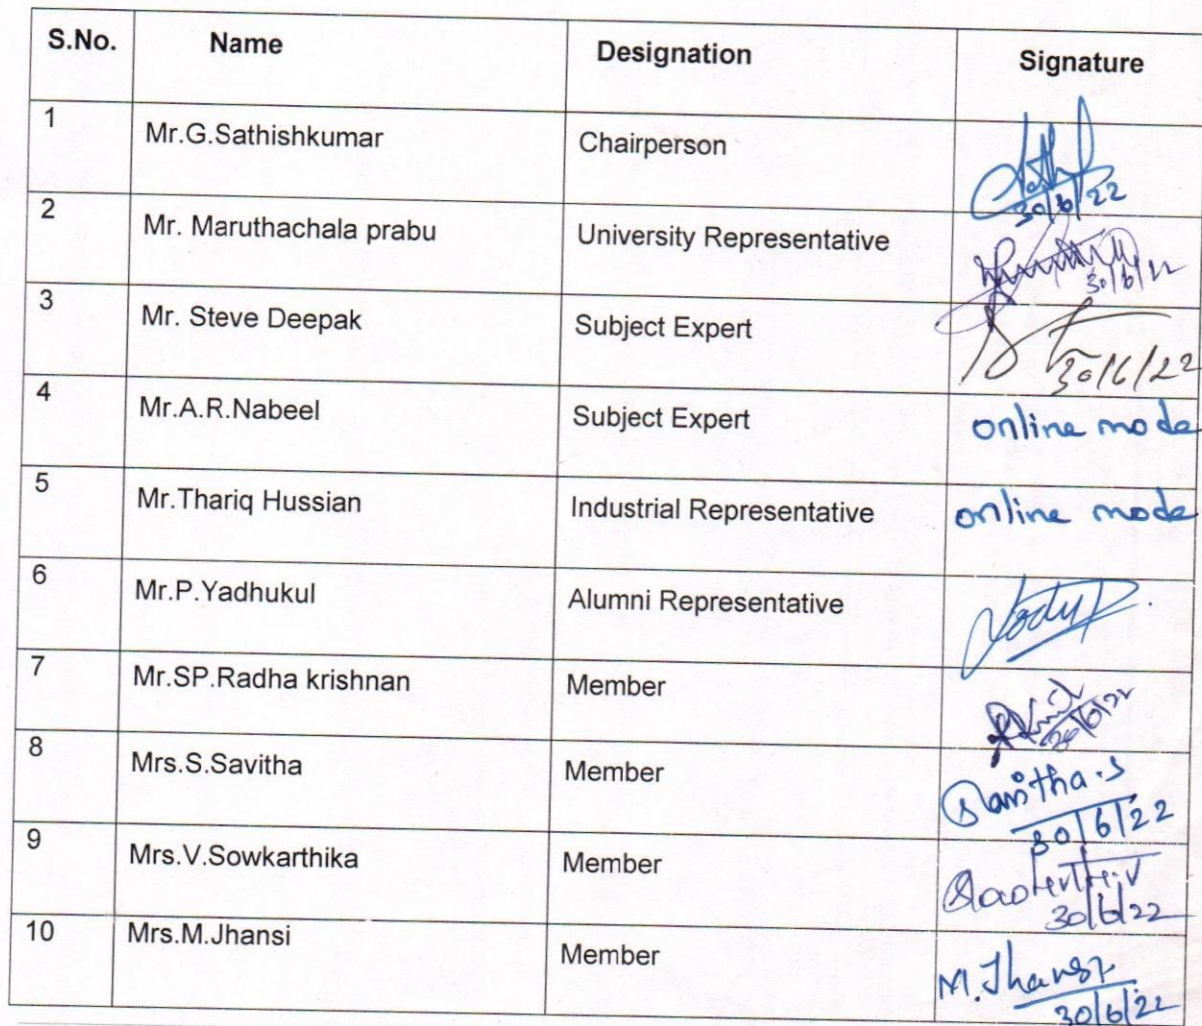 S.No. Name Designation Signature
1 Mr.G.Sathishkumar Chairperson
30/6/22
2 Mr. Maruthachala prabu University Representative
30/6/22
3 Mr. Steve Deepak Subject Expert
30/6/22
4 Mr.A.R.Nabeel Subject Expert online mode
5 Mr.Thariq Hussian Industrial Representative online mode
6 Mr.P.Yadhukul Alumni Representative
7 Mr.SP.Radha krishnan Member
30/6/22
8 Mrs.S.Savitha Member Savitha.S
30/6/22
9 Mrs.V.Sowkarthika Member
30/6/22
10 Mrs.M.Jhansi Member M.Jhansi
30/6/22